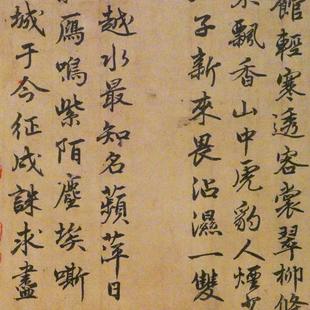 館輕寒透客裳翠柳條
飄香山中虎豹人煙
子新來畏沾濕一雙
越水最知名蘋日
鴈鳴紫陌塵埃嘶
城于今征戍誅求盡